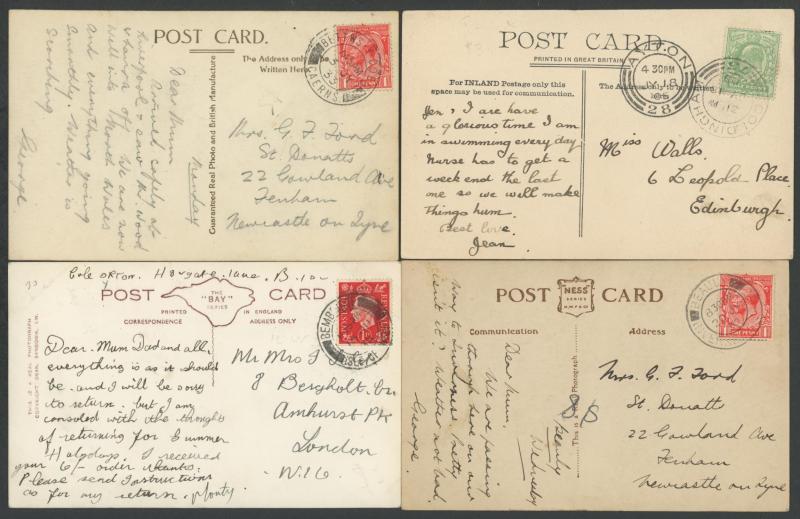 POST CARD.
The Address only to be
Written Here.
Guaranteed Real Photo and British Manufacture
Monday
Dear Mum
Arrived safely at
Liverpool & saw Mr. Wood
started off. We are now
well into North Wales
and everything going
smoothly. Weather is
scorching
George
Mrs. G. F. Ford
St. Donatts
22 Gowland Ave
Fenham
Newcastle on Tyne
CAERNS
POST CARD.
PRINTED IN GREAT BRITAIN.
For INLAND Postage only this
space may be used for communication.
The Address only to be written
4 30PM
JY 18
28
Jen, I are have
a glorious time I am
in swimming every day
Nurse has to get a
week end the last
one so we well make
things hum.
Best love.
Jean.
Miss Walls.
6 Leopold Place.
Edinburgh.
POST CARD
THE
"BAY"
SERIES
PRINTED IN ENGLAND
CORRESPONDENCE ADDRESS ONLY
THIS IS A REAL PHOTOGRAPH
POSTAGE REVENUE
Dear. Mum Dad and all,
everything is as it should
be. and I will be sorry
to return. but I am
consoled with the thought
of returning for Summer
Holydays. I received
your 6/- order thanks.
Please send Instructions
as for my return. Monty
Mr Mrs
8 Bergholt Cr
Amhurst Pk
London
N.16
POST CARD
NESS
SERIES
Communication
Address
This is a Real Photograph.
Beauly
Wednesday
Dear Mum,
We are passing
through here on our
way to
George
Mrs. G. F. Ford
St. Donatts
22 Gowland Ave
Fenham
Newcastle on Tyne